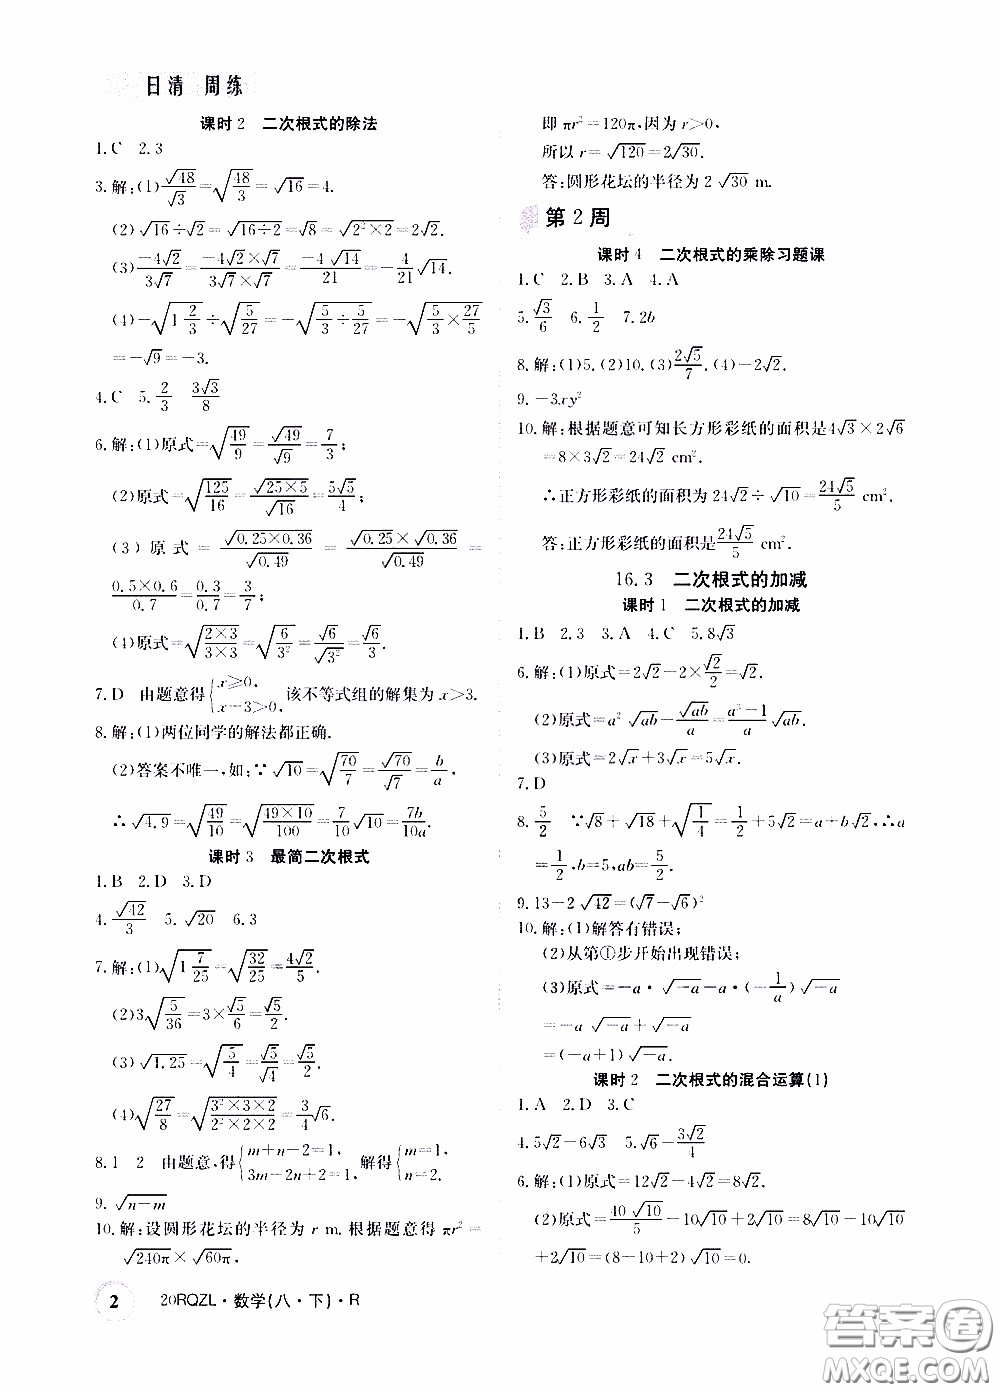 日清 周练
课时2 二次根式的除法
1.C 2.3
3.解:(1)√48/√3=√(48/3)=√16=4.
(2)√16÷√2=√(16÷2)=√8=√(2²×2)=2√2.
(3)-4√2/3√7=-4√2×√7/3√7×√7=-4√14/21=-4/21√14.
(4)-√(1 2/3)÷√(5/27)=-√(5/3÷5/27)=-√(5/3×27/5)
=-√9=-3.
4.C 5.2/3 3√3/8
6.解:(1)原式=√(49/9)=√49/√9=7/3;
(2)原式=√(125/16)=√(25×5)/√16=5√5/4;
(3)原式=√(0.25×0.36)/√0.49=√0.25×√0.36/√0.49=
0.5×0.6/0.7=0.3/0.7=3/7;
(4)原式=√(2×3/3×3)=√(6/3²)=√6/√3²=√6/3.
7.D 由题意得{x≥0, x-3>0, 该不等式组的解集为x>3.
8.解:(1)两位同学的解法都正确.
(2)答案不唯一,如:∵√10=√(70/7)=√70/√7=b/a,
∴√4.9=√(49/10)=√(49×10/100)=7/10√10=7b/10a.
课时3 最简二次根式
1.B 2.D 3.D
4.√42/3 5.√20 6.3
7.解:(1)√(1 7/25)=√(32/25)=4√2/5.
(2)3√(5/36)=3×√5/6=√5/2.
(3)√1.25=√(5/4)=√5/√4=√5/2.
(4)√(27/8)=√(3²×3×2/2²×2×2)=3/4√6.
8.1 2 由题意,得{m+n-2=1, 3m-2n+2=1, 解得{m=1, n=2.
9.√(n-m)
10.解:设圆形花坛的半径为r m.根据题意得πr²=
√240π×√60π,
即πr²=120π,因为r>0,
所以r=√120=2√30.
答:圆形花坛的半径为2√30 m.
第2周
课时4 二次根式的乘除习题课
1.C 2.B 3.A 4.A
5.√3/6 6.1/2 7.2b
8.解:(1)5.(2)10.(3)2√5/7.(4)-2√2.
9.-3xy²
10.解:根据题意可知长方形彩纸的面积是4√3×2√6
=8×3√2=24√2 cm².
∴正方形彩纸的面积为24√2÷√10=24√5/5 cm².
答:正方形彩纸的面积是24√5/5 cm².
16.3 二次根式的加减
课时1 二次根式的加减
1.B 2.3 3.A 4.C 5.8√3
6.解:(1)原式=2√2-2×√2/2=√2.
(2)原式=a²√ab-√ab/a=a³-1/a√ab.
(3)原式=2√x+3√x=5√x.
7.D
8.5/2 ∵√8+√18+√(1/4)=1/2+5√2=a+b√2,∴a
=1/2,b=5,ab=5/2.
9.13-2√42=(√7-√6)²
10.解:(1)解答有错误;
(2)从第①步开始出现错误;
(3)原式=-a·√-a-a·(-1/a)√-a
=-a√-a+√-a
=(-a+1)√-a.
课时2 二次根式的混合运算(1)
1.A 2.D 3.C
4.5√2-6√3 5.√6-3√2/4
6.解:(1)原式=12√2-4√2=8√2.
(2)原式=40√10/5-10√10+2√10=8√10-10√10
+2√10=(8-10+2)√10=0.
2 20RQZL·数学(八·下)·R
答案圈
MXQE.COM